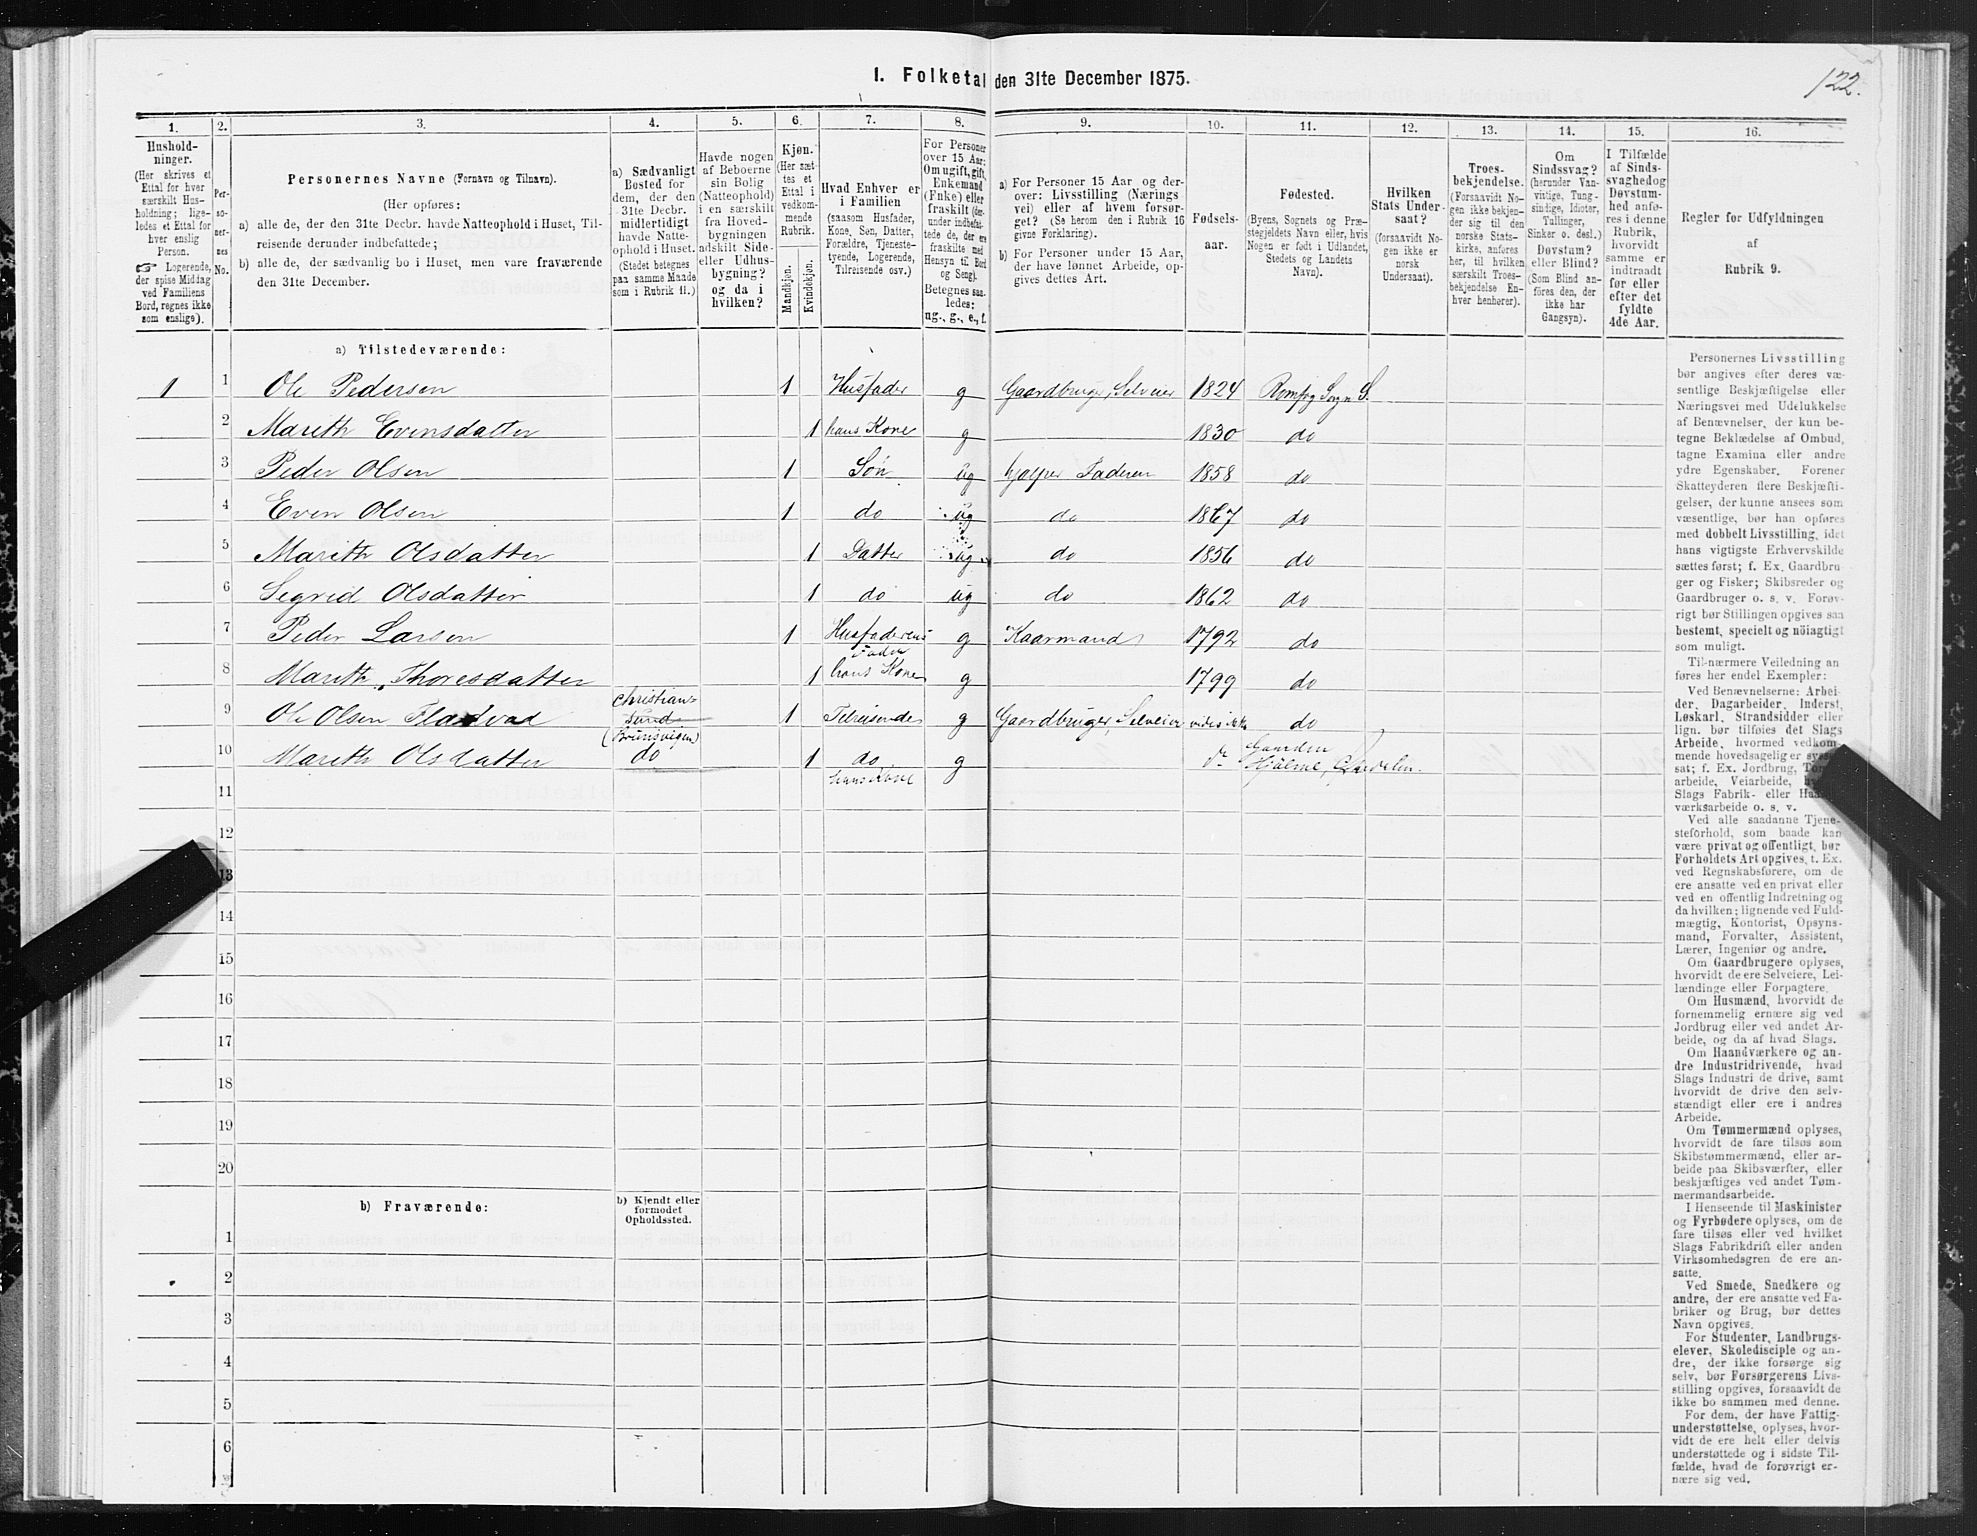 I. Folketal den 31te December 1875.
122.
1.
2.
3.
4.
5.
6.
7.
8.
9.
10.
11.
12.
13.
14.
15.
16.
Hushold-
ninger.
(Her skrives et
Ettal for hver
særskilt Hus-
holdning; lige-
ledes et Ettal for
hver enslig
Person.
☞ Logerende,
der spise Middag
ved Familiens
Bord, regnes ikke
som enslige).
Per-
so-
ner-
nes
No.
Personernes Navne (Fornavn og Tilnavn).
(Her opføres:
a) alle de, der den 31te Decbr. havde Natteophold i Huset, Til-
reisende derunder indbefattede;
b) alle de, der sædvanlig bo i Huset, men vare fraværende
den 31te December.
a) Sædvanligt
Bosted for
dem, der den
31te Decbr.
midlertidigt
havde Natte-
ophold i Huset.
(Stedet betegnes
paa samme Maade
som i Rubrik 11.)
Havde nogen
af Beboerne
sin Bolig
(Natteophold)
i en særskilt
fra Hoved-
bygningen
adskilt Side-
eller Udhus-
bygning?
og da i
hvilken?
Kjøn.
(Her sæt-
tes et
Ettal i
vedkom-
mende
Rubrik.
Mandkjøn.
Kvindekjøn.
Hvad Enhver er
i Familien
(saasom Husfader,
Kone, Søn, Datter,
Forældre, Tjeneste-
tyende, Logerende,
Tilreisende osv.)
For Personer
over 15 Aar:
Om ugift, gift,
Enkemand
(Enke) eller
fraskilt (der-
under indbefat-
tede de, der ere
fraskilte med
Hensyn til Bord
og Seng).
Betegnes saa-
ledes:
ug., g., e., f.
a) For Personer 15 Aar og der-
over: Livsstilling (Nærings-
vei) eller af hvem forsør-
get? (Se herom den i Rubrik 16
givne Forklaring).
b) For Personer under 15 Aar,
der have lønnet Arbeide, op-
gives dettes Art.
Fødsels-
aar.
Fødested.
(Byens, Sognets og Præ-
stegjeldets Navn eller, hvis
Nogen er født i Udlandet,
Stedets og Landets
Navn).
Hvilken
Stats Under-
saat?
(forsaavidt No-
gen ikke er
norsk
Undersaat).
Troes-
bekjendelse.
(Forsaavidt No-
gen ikke bekjen-
der sig til den
norske Stats-
kirke, anføres
her, til hvilken
særskilt Troes-
bekjendelse En-
hver henhører).
Om
Sindssvag?
(herunder Van-
vittige, Tung-
sindige, Idioter,
Tullinger,
Sinker o. desl.)
Døvstum?
eller Blind?
(Som Blind an-
føres den, der
ikke har
Gangsyn).
I Tilfælde
af Sinds-
svaghed og
Døvstum-
hed anfø-
res i denne
Rubrik,
hvorvidt
samme er
indtraadt
før eller
efter det
fyldte
4de Aar.
Regler for Udfyldningen
af
Rubrik 9.
a) Tilstedeværende:
1 1 Ole Pedersen 1 Husfader g Gaardbruger, Selveier 1824 Romfog Sogn S.
2 Marith Evensdatter 1 hans Kone g 1830 do
3 Peder Olsen 1 Søn ug hjælper Faderen 1858 do
4 Even Olsen 1 do ug do 1867 do
5 Marith Olsdatter 1 Datter ug do 1856 do
6 Segrid Olsdatter 1 do ug do 1862 do
7 Peder Larsen 1 Husfaderens Fader g Kaarmand 1792 do
8 Marith Thoresdatter 1 hans Kone g 1799 do
9 Ole Olsen Fladvad Christian-
sund
(Brunsvigen) 1 Tilreisende g Gaardbruger, Selveier vides ikke do
10 Marith Olsdatter do 1 do
hans Kone g Gaarden
Hjälme,
11
12
13
14
15
16
17
18
19
20
b) Fraværende:
b) Kjendt eller
formodet
Opholdssted.
1
2
3
4
5
6
Personernes Livsstilling
bør angives efter deres væ-
sentlige Beskjæftigelse eller
Næringsvei med Udelukkelse
af Benævnelser, der kun be-
tegne Beklædelse af Ombud,
tagne Examina eller andre
ydre Egenskaber. Forener
Skatteyderen flere Beskjæfti-
gelser, der kunne ansees som
væsentlige, bør han opføres
med dobbelt Livsstilling, idet
hans vigtigste Erhvervskilde
sættes først; f. Ex. Gaardbru-
ger og Fisker; Skibsreder og
Gaardbruger o. s. v. Forøv-
rigt bør Stillingen opgives saa
bestemt, specielt og nöiagtigt
som muligt.
Til nærmere Veiledning an-
føres her endel Exempler:
Ved Benævnelserne: Arbei-
der, Dagarbeider, Inderst,
Løskarl, Strandsidder eller
lign. bør tilføies det Slags
Arbeide, hvormed vedkom-
mende hovedsagelig er syssel-
sat; f. Ex. Jordbrug,
arbeide, Veiarbeide,
Slags Fabrik- eller
værksarbeide o. s. v.
Ved alle saadanne Tjene-
steforhold, som baade kan
være privat og offentligt, bør
Forholdets Art opgives, t. Ex.
ved Regnskabsførere, om de
ere ansatte ved en privat eller
ved en offentlig Indretning og
da hvilken; lignende ved Fuld-
mægtig, Kontorist, Opsyns-
mand, Forvalter, Assistent,
Lærer, Ingeniør og andre.
Om Gaardbrugere oplyses,
hvorvidt de ere Selveiere, Lei-
lændinge eller Forpagtere.
Om Husmænd, hvorvidt de
fornemmelig ernære sig ved
Jordbrug eller ved andet Ar-
beide, og da af hvad Slags.
Om Haandværkere og an-
dre Industridrivende, hvad
Slags Industri de drive, samt
hvorvidt de drive den selv-
stændigt eller ere i andres
Arbeide.
Om Tømmermænd oplyses,
hvorvidt de fare tilsøs som
Skibstømmermænd, eller ar-
beide paa Skibsværfter, eller
beskjæftiges ved andet Tøm-
mermandsarbeide.
I Henseende til Maskinister
og Fyrbødere oplyses, om de
fare tilsøs eller ved hvilket
Slags Fabrikdrift eller anden
Virksomhedsgren de ere an-
satte.
Ved Smede, Snedkere og
andre, der ere ansatte ved Fa-
briker og Brug, bør dettes
Navn opgives.
For Studenter, Landbrugs-
elever, Skoledisciple og an-
dre, der ikke forsørge sig
selv, bør Forsørgerens Livs-
stilling opgives, forsaavidt de
ikke bo sammen med denne.
For dem, der have Fattig-
understøttelse, oplyses, hvor-
vidt de ere helt eller delvis
understøttede og i sidste Til-
fælde, hvad de forøvrigt er-
nære sig ved.